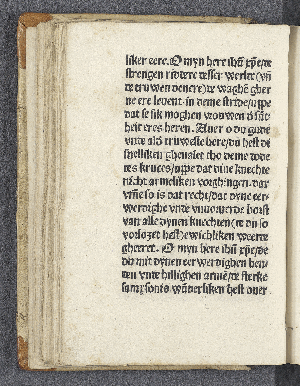 liker eere. O myn here ihū xp̄e/de
strengen riddere desser werlt (vñ
de truwen denere) de waghē gher
ne ere leuent in deme stride/vppe
dat se sik moghen vrouwen d' sūt
heit eres heren. Auer o du gude
vnde ald' truwelste here/du hest de
snelliken ghenalet tho deme dode
des kruces/vppe dat dine knechte
nicht armeliken vorghingen. dar
vm̄e so is dat recht/dat dyne eer
werdighe vnde vnuorerde borst
van alle dynen knechten (de du so
vorlozet hest) ewichliken werde
gheeret. O myn here ihū xp̄e/de
du mit dynen eerwerdighen hen
den vnde hillighen armē/de sterke
sampsonis wūderliken hest ouer